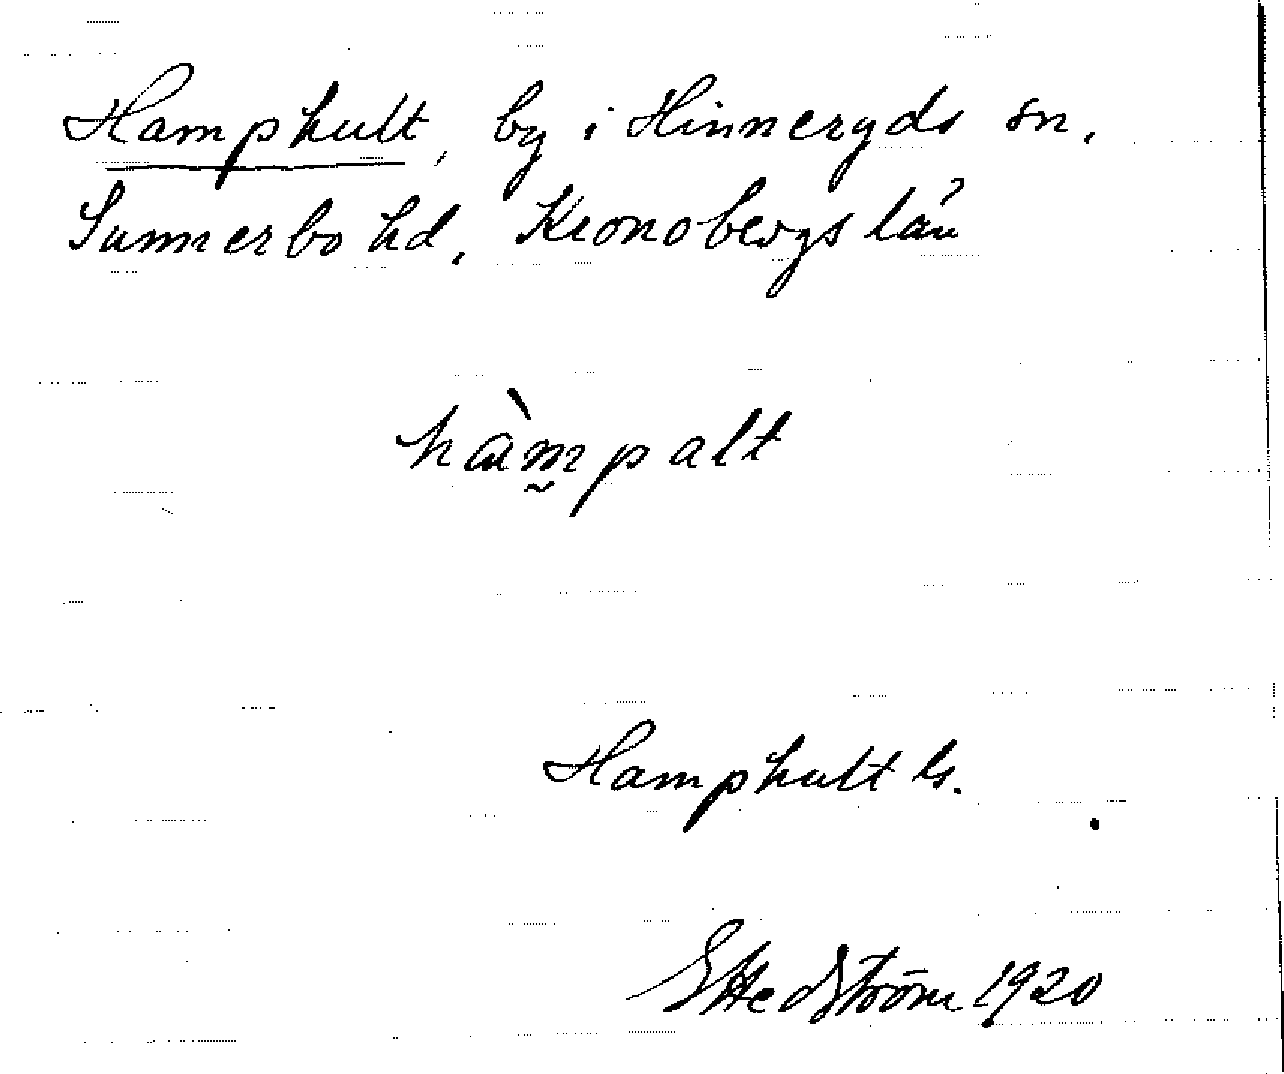 Hamphult, by i Hinneryds sn.
Sunnerbo hd. Kronobergs län
hàmpalt
Hamphult ls.
E Hedström 1920